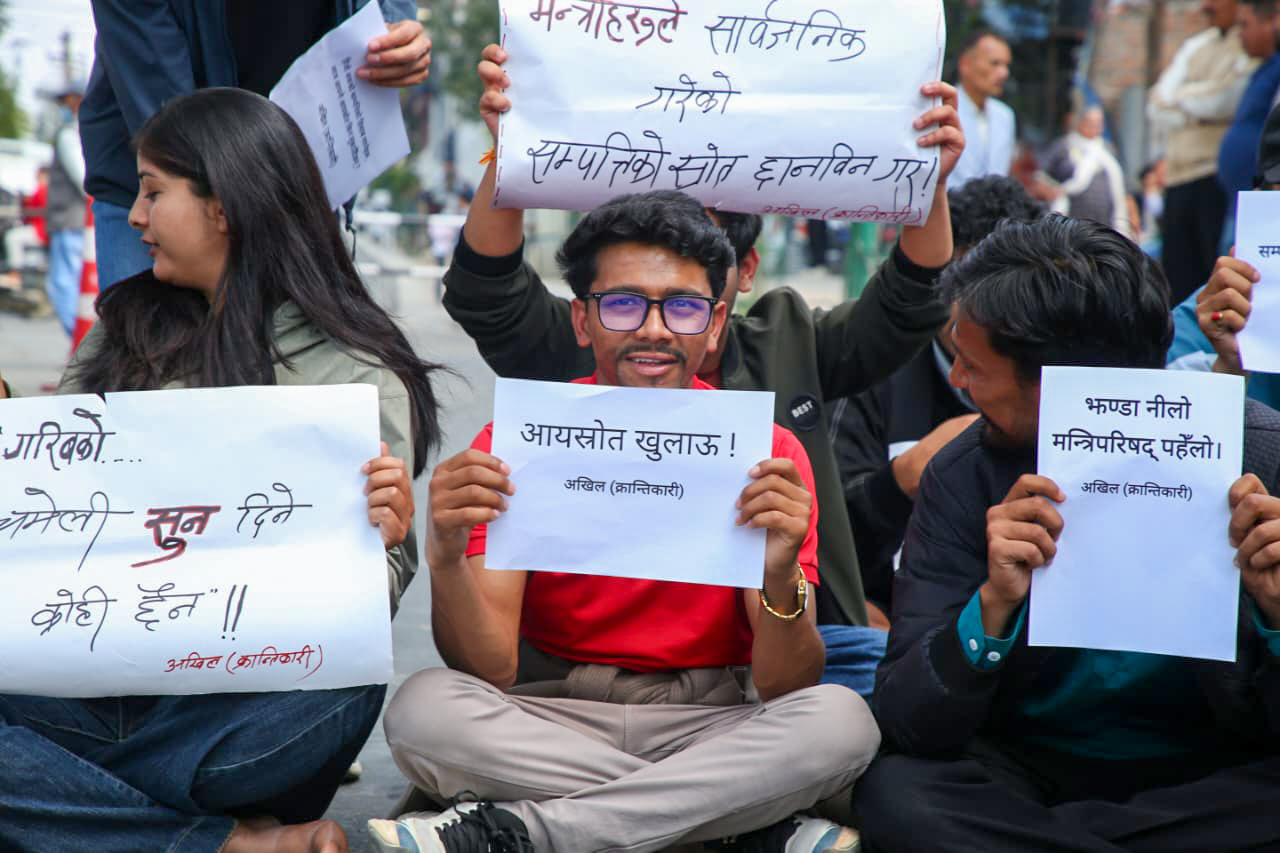 मन्त्रीहरुले सार्वजनिक
गरेको
सम्पत्तिको स्रोत छानविन गर!
अखिल (क्रान्तिकारी)
गरिबको....
चमेली सुन दिने
कोही छैन" !!
अखिल (क्रान्तिकारी)
आयस्रोत खुलाऊ !
अखिल (क्रान्तिकारी)
BEST
झण्डा नीलो
मन्त्रिपरिषद् पहेँलो।
अखिल (क्रान्तिकारी)